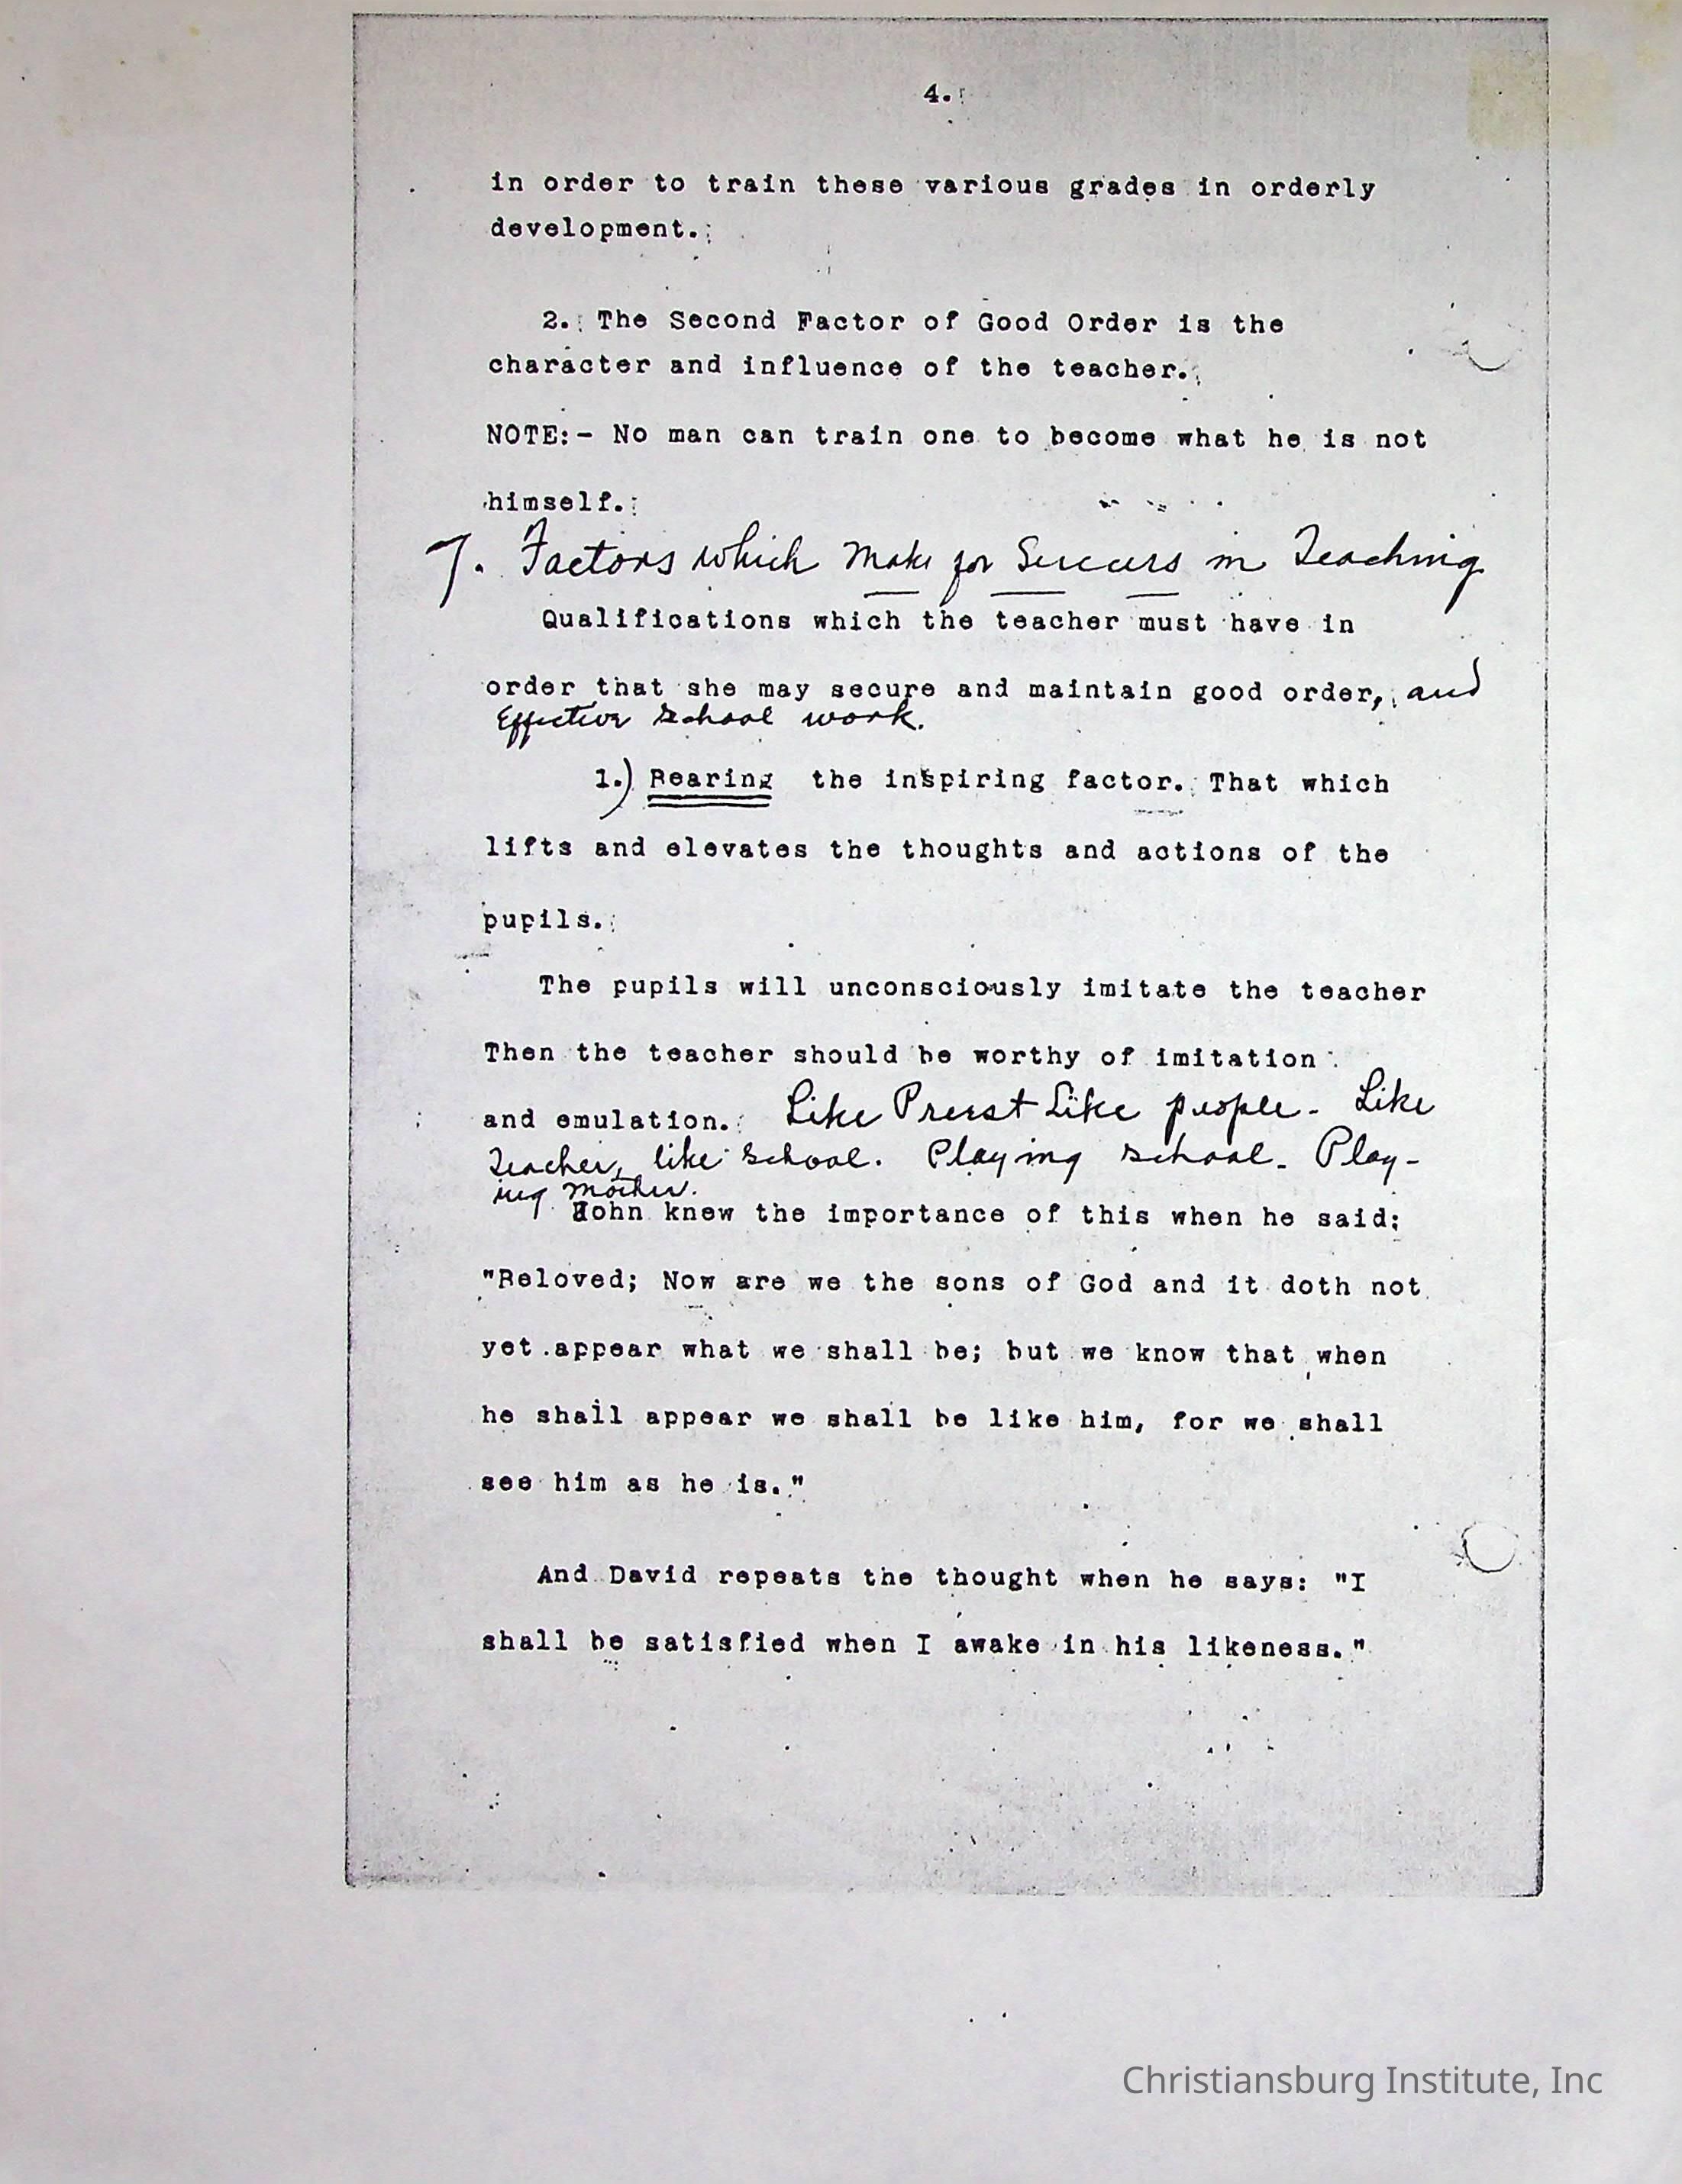 4.
in order to train these various grades in orderly
development.
2. The Second Factor of Good Order is the
character and influence of the teacher.
NOTE:- No man can train one to become what he is not
himself.
7. Factors which make for Success in Teaching
Qualifications which the teacher must have in
order that she may secure and maintain good order, and
Effective School work.
1.) Bearing the inspiring factor. That which
lifts and elevates the thoughts and actions of the
pupils.
The pupils will unconsciously imitate the teacher
Then the teacher should be worthy of imitation
and emulation. Like Preist Like people. Like
Teacher, like School. Playing school. Play-
ing Mother.
John knew the importance of this when he said:
"Beloved; Now are we the sons of God and it doth not
yet appear what we shall be; but we know that when
he shall appear we shall be like him, for we shall
see him as he is."
And David repeats the thought when he says: "I
shall be satisfied when I awake in his likeness."
Christiansburg Institute, Inc